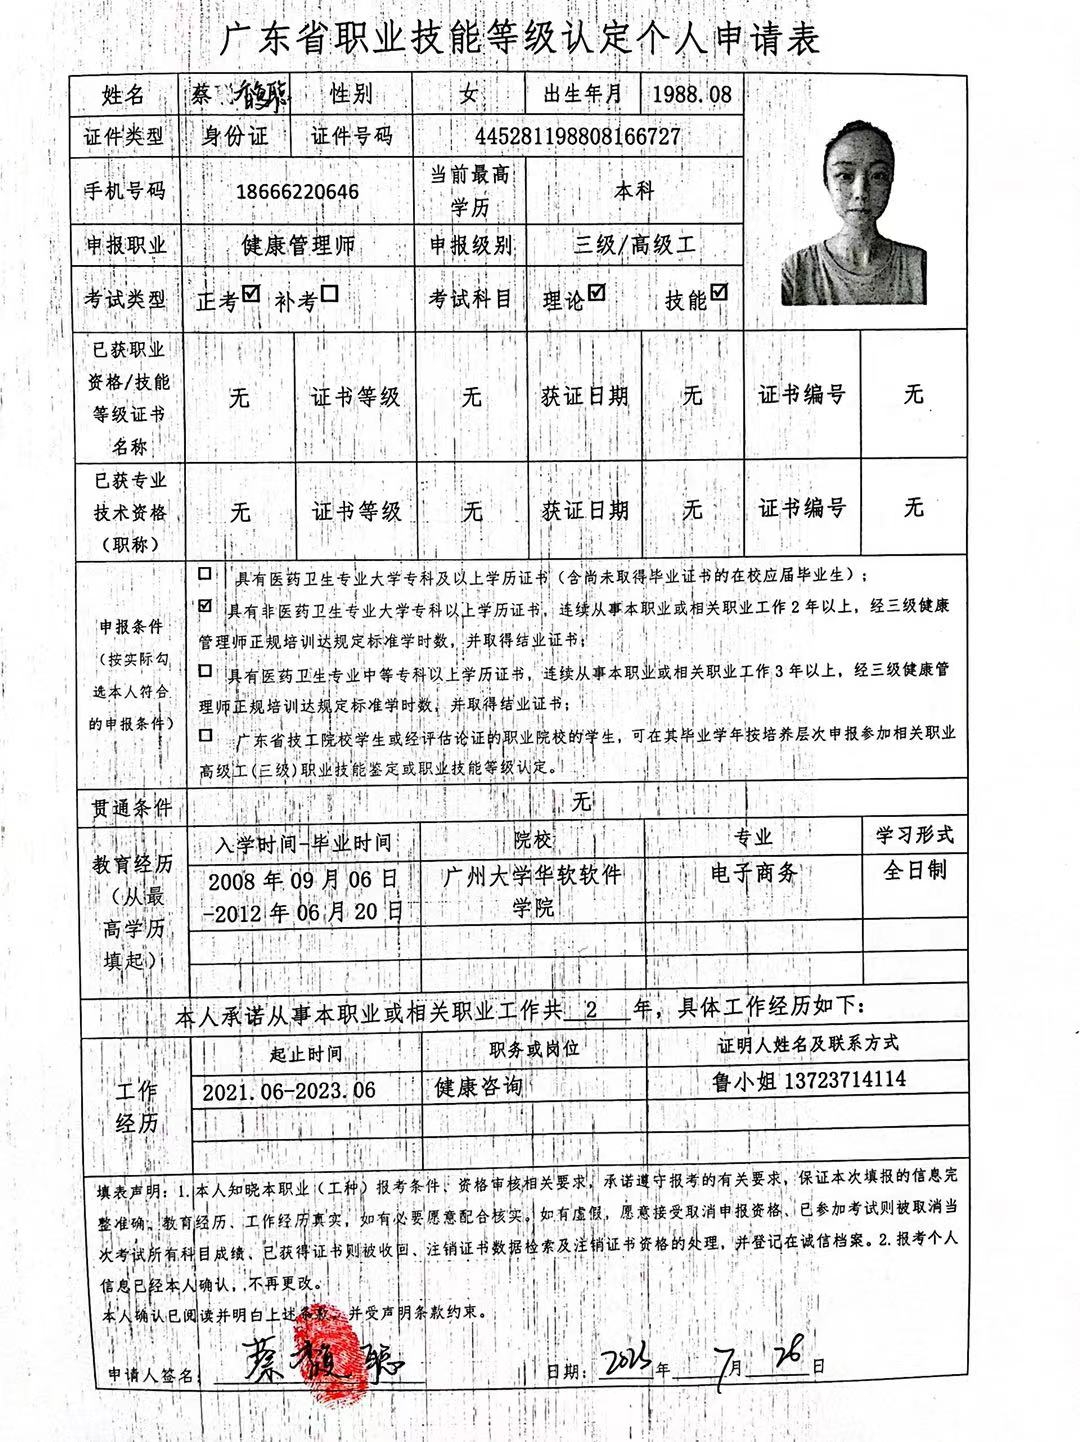 广东省职业技能等级认定个人申请表
姓名 蔡馥聪 性别 女 出生年月 1988.08
证件类型 身份证 证件号码 445281198808166727
手机号码 18666220646 当前最高
学历 本科
申报职业 健康管理师 申报级别 三级/高级工
考试类型 正考☑ 补考☐ 考试科目 理论☑ 技能☑
已获职业
资格/技能
等级证书
名称 无 证书等级 无 获证日期 无 证书编号 无
已获专业
技术资格
（职称） 无 证书等级 无 获证日期 无 证书编号 无
申报条件
（按实际勾
选本人符合
的申报条件）
☐ 具有医药卫生专业大学专科及以上学历证书（含尚未取得毕业证书的在校应届毕业生）；
☑ 具有非医药卫生专业大学专科以上学历证书，连续从事本职业或相关职业工作2年以上，经三级健康
管理师正规培训达规定标准学时数，并取得结业证书；
☐ 具有医药卫生专业中等专科以上学历证书，连续从事本职业或相关职业工作3年以上，经三级健康管
理师正规培训达规定标准学时数，并取得结业证书；
☐ 广东省技工院校学生或经评估论证的职业院校的学生，可在其毕业学年按培养层次申报参加相关职业
高级工(三级)职业技能鉴定或职业技能等级认定。
贯通条件 无
教育经历
（从最
高学历
填起）
入学时间-毕业时间 院校 专业 学习形式
2008年09月06日
-2012年06月20日 广州大学华软软件
学院 电子商务 全日制
本人承诺从事本职业或相关职业工作共 2 年，具体工作经历如下：
工作
经历
起止时间 职务或岗位 证明人姓名及联系方式
2021.06-2023.06 健康咨询 鲁小姐 13723714114
填表声明：1.本人知晓本职业（工种）报考条件、资格审核相关要求，承诺遵守报考的有关要求，保证本次填报的信息完
整准确，教育经历、工作经历真实，如有必要愿意配合核实。如有虚假，愿意接受取消申报资格、已参加考试则被取消当
次考试所有科目成绩、已获得证书则被收回、注销证书数据检索及注销证书资格的处理，并登记在诚信档案。2.报考个人
信息已经本人确认，不再更改。
本人确认已阅读并明白上述条款，并受声明条款约束。
申请人签名：蔡馥聪 日期：2023年7月26日